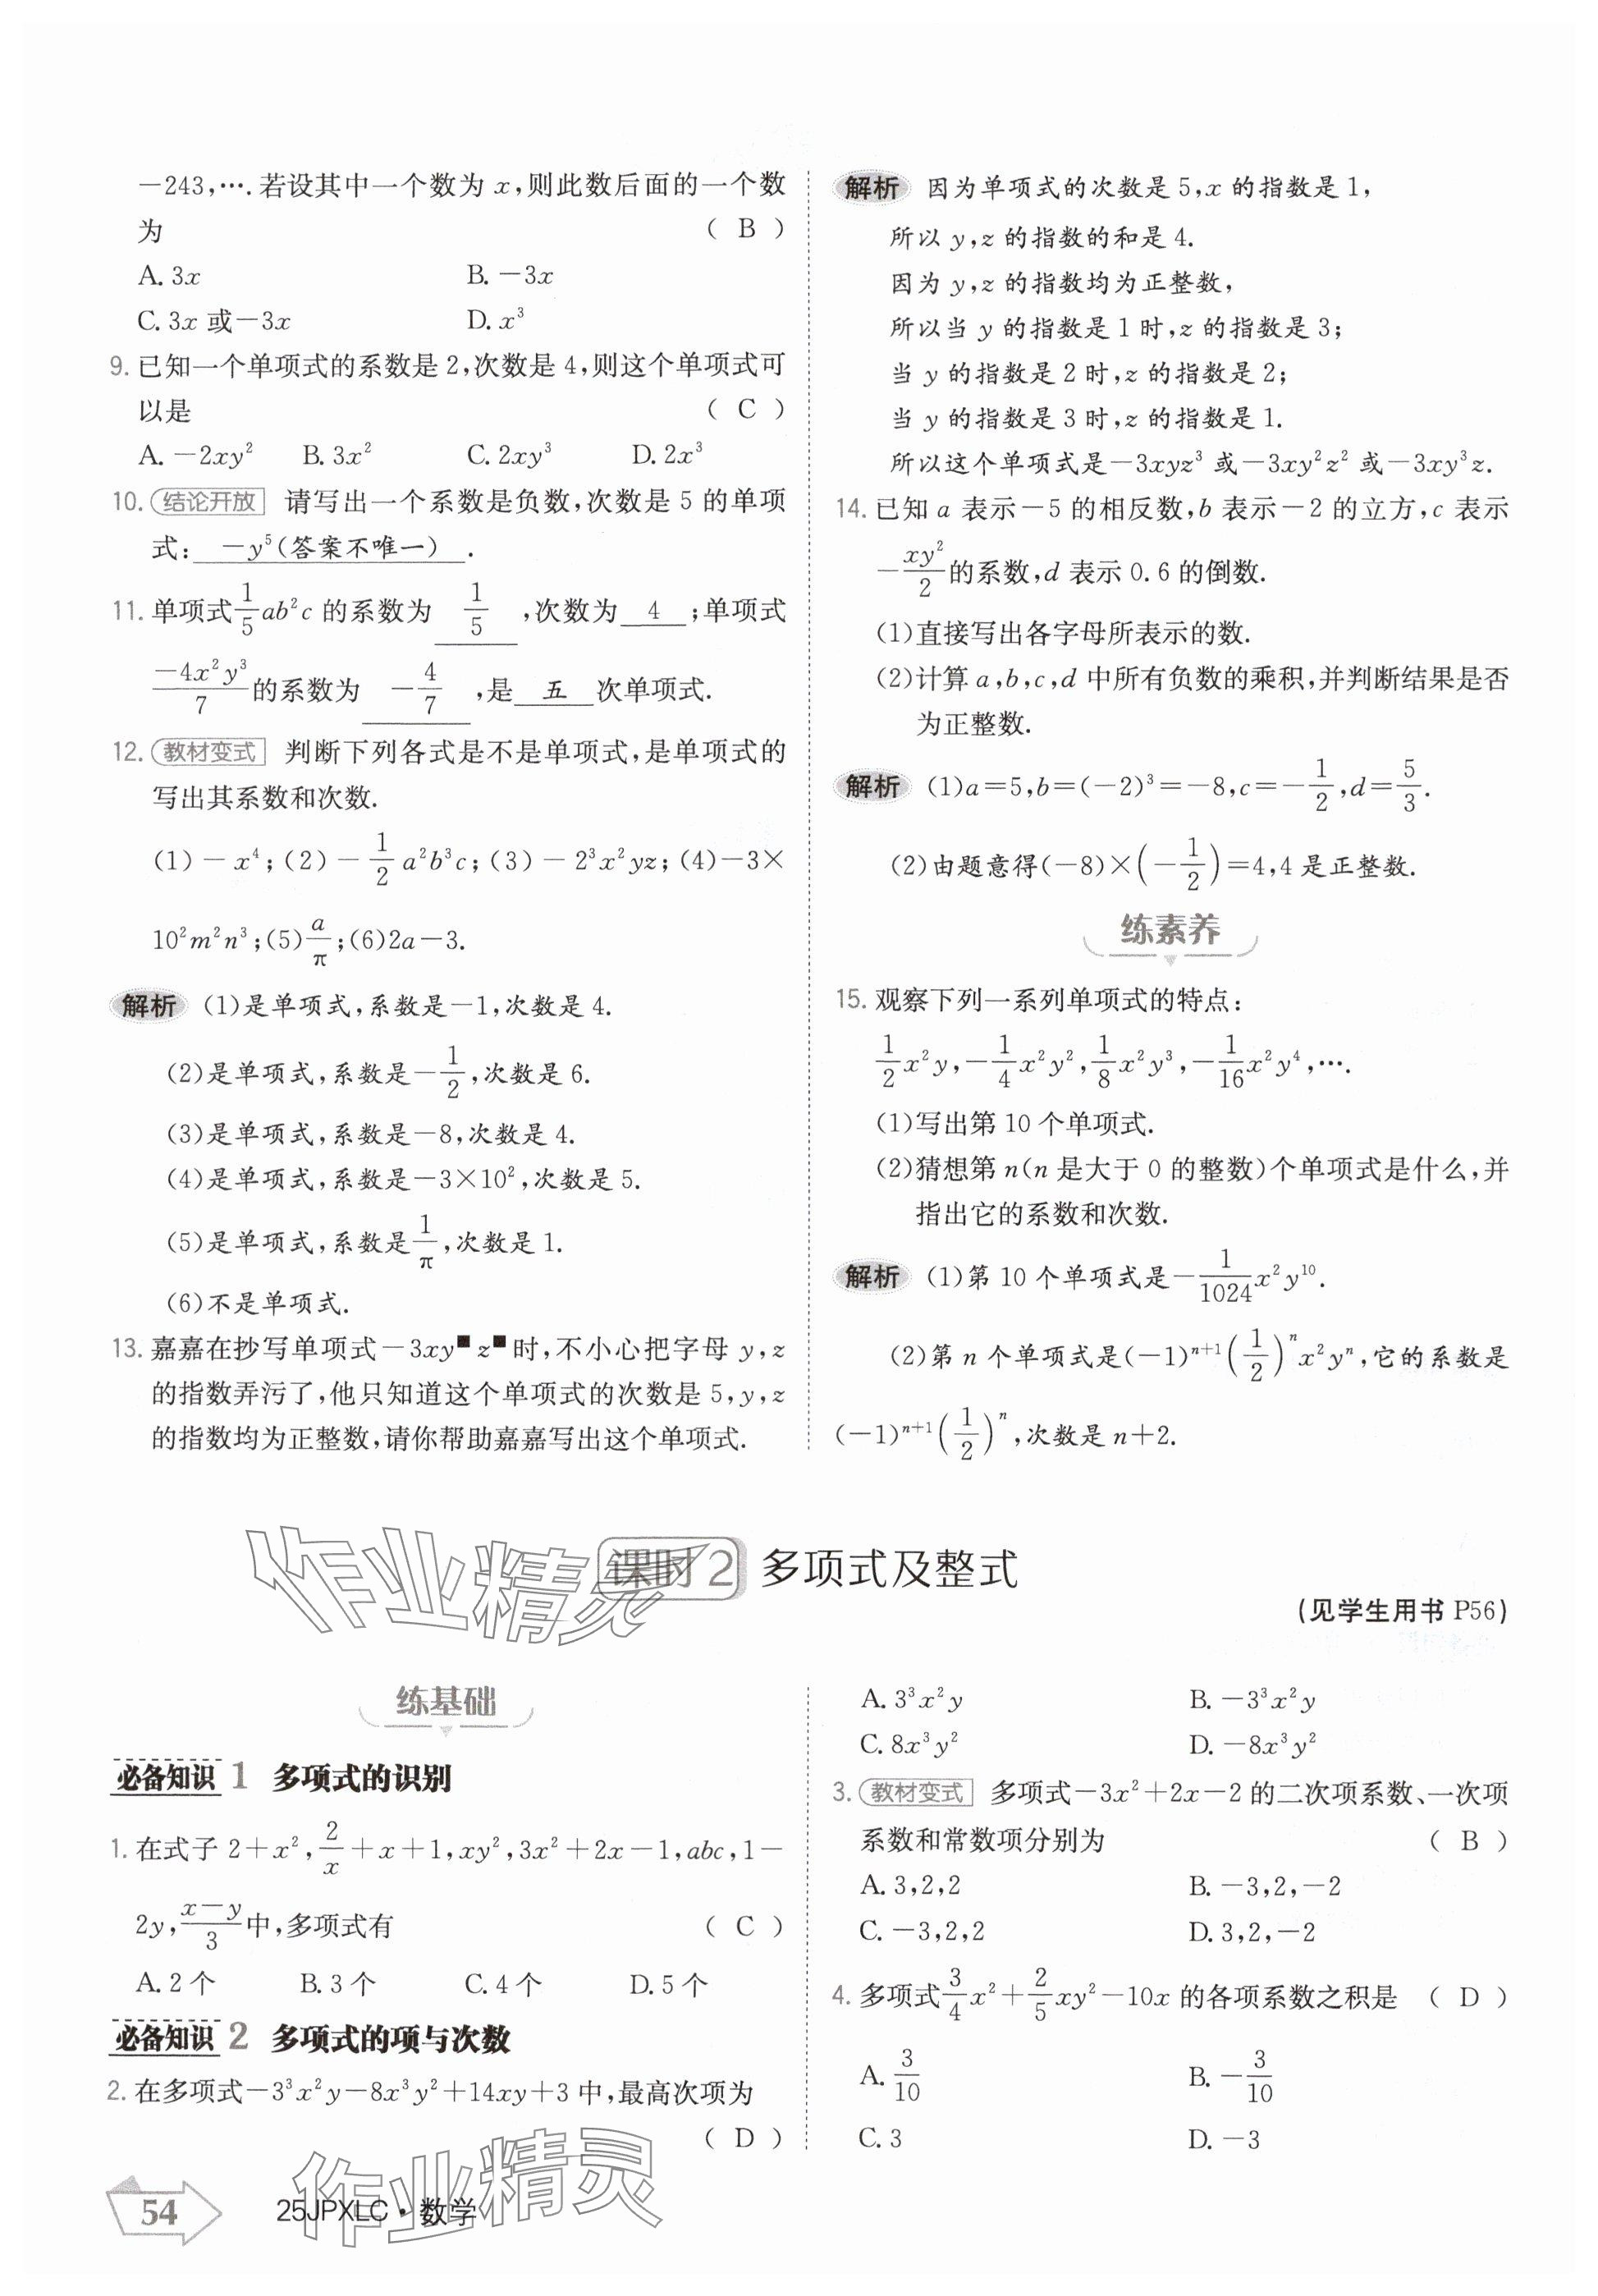 -243,….若设其中一个数为 x,则此数后面的一个数
为 ( B )
A. 3x B. -3x
C. 3x 或-3x D. x³
9. 已知一个单项式的系数是 2,次数是 4,则这个单项式可
以是 ( C )
A. -2xy² B. 3x² C. 2xy³ D. 2x³
10. 结论开放 请写出一个系数是负数,次数是 5 的单项
式: -y⁵(答案不唯一) .
11. 单项式 1/5 ab²c 的系数为 1/5 ,次数为 4 ;单项式
-4x²y³/7 的系数为 -4/7 ,是 五 次单项式.
12. 教材变式 判断下列各式是不是单项式,是单项式的
写出其系数和次数.
(1)-x⁴;(2)-1/2 a²b³c;(3)-2³x²yz;(4)-3×
10²m²n³;(5)a/π;(6)2a-3.
解析 (1)是单项式,系数是-1,次数是 4.
(2)是单项式,系数是-1/2,次数是 6.
(3)是单项式,系数是-8,次数是 4.
(4)是单项式,系数是-3×10²,次数是 5.
(5)是单项式,系数是1/π,次数是 1.
(6)不是单项式.
13. 嘉嘉在抄写单项式-3xy■z■时,不小心把字母 y,z
的指数弄污了,他只知道这个单项式的次数是 5,y,z
的指数均为正整数,请你帮助嘉嘉写出这个单项式.
解析 因为单项式的次数是 5,x 的指数是 1,
所以 y,z 的指数的和是 4.
因为 y,z 的指数均为正整数,
所以当 y 的指数是 1 时,z 的指数是 3;
当 y 的指数是 2 时,z 的指数是 2;
当 y 的指数是 3 时,z 的指数是 1.
所以这个单项式是-3xyz³ 或-3xy²z² 或-3xy³z.
14. 已知 a 表示-5 的相反数,b 表示-2 的立方,c 表示
-xy²/2 的系数,d 表示 0.6 的倒数.
(1)直接写出各字母所表示的数.
(2)计算 a,b,c,d 中所有负数的乘积,并判断结果是否
为正整数.
解析 (1)a=5,b=(-2)³=-8,c=-1/2,d=5/3.
(2)由题意得(-8)×(-1/2)=4,4 是正整数.
练素养
15. 观察下列一系列单项式的特点:
1/2 x²y,-1/4 x²y²,1/8 x²y³,-1/16 x²y⁴,….
(1)写出第 10 个单项式.
(2)猜想第 n(n 是大于 0 的整数)个单项式是什么,并
指出它的系数和次数.
解析 (1)第 10 个单项式是-1/1024 x²y¹⁰.
(2)第 n 个单项式是(-1)ⁿ⁺¹(1/2)ⁿx²yⁿ,它的系数是
(-1)ⁿ⁺¹(1/2)ⁿ,次数是 n+2.
作业精灵
课时2 多项式及整式
(见学生用书 P56)
练基础
必备知识 1 多项式的识别
1. 在式子 2+x²,2/x+x+1,xy²,3x²+2x-1,abc,1-
2y,x-y/3 中,多项式有 ( C )
A. 2 个 B. 3 个 C. 4 个 D. 5 个
必备知识 2 多项式的项与次数
2. 在多项式-3³x²y-8x³y²+14xy+3 中,最高次项为
( D )
A. 3³x²y B. -3³x²y
C. 8x³y² D. -8x³y²
3. 教材变式 多项式-3x²+2x-2 的二次项系数、一次项
系数和常数项分别为 ( B )
A. 3,2,2 B. -3,2,-2
C. -3,2,2 D. 3,2,-2
4. 多项式 3/4 x²+2/5 xy²-10x 的各项系数之积是 ( D )
A. 3/10 B. -3/10
C. 3 D. -3
作业精灵
54 25JPXLC·数学